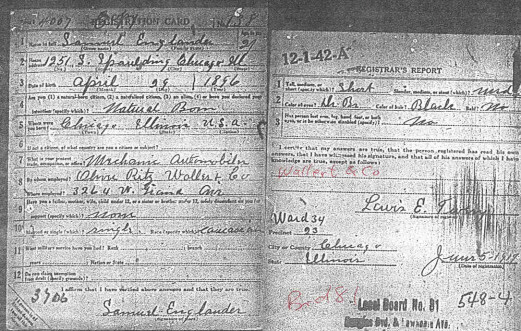 REGISTRATION CARD No. 158
1 Name in full Samuel Englander 21
2 Home 1251 S. Spaulding Chicago Ill
3 Date of birth April 29 1896
4 Natural Born
5 Where were you born? Chicago Illinois U.S.A.
6 If not a citizen, of what country are you a citizen or subject?
7 What is your present Mechanic Automobiles
8 By whom employed?
Where employed? 3264 W. Grand Ave
9 Have you a father, mother, wife, child under 12, or a sister or brother under 12, solely dependent on you for
support (specify which)? none
10 Married or single (which)? single Race (specify which)? Caucasian
11 What military service have you had? Rank branch
years Nation or State
12 Do you claim exemption
from draft (specify grounds)?
I affirm that I have verified above answers and that they are true.
3706
Samuel Englander
12-1-42-A
REGISTRAR'S REPORT
1 Tall, medium, or short (specify which)? Short Slender, medium, or stout (which)? med
2 Color of eyes? Color of hair? Black Bald? No
3 Has person lost arm, leg, hand, foot, or both
eyes, or is he otherwise disabled (specify)? No
I certify that my answers are true, that the person registered has read his own
answers, that I have witnessed his signature, and that all of his answers of which I have
knowledge are true, except as follows:
& Co
Lewis E.
Ward 34
Precinct 23
City or County Chicago
State Illinois
June 5-1917
(Date of registration)
Local Board No. 81
Douglas Blvd. & Lawndale Ave.
548-4